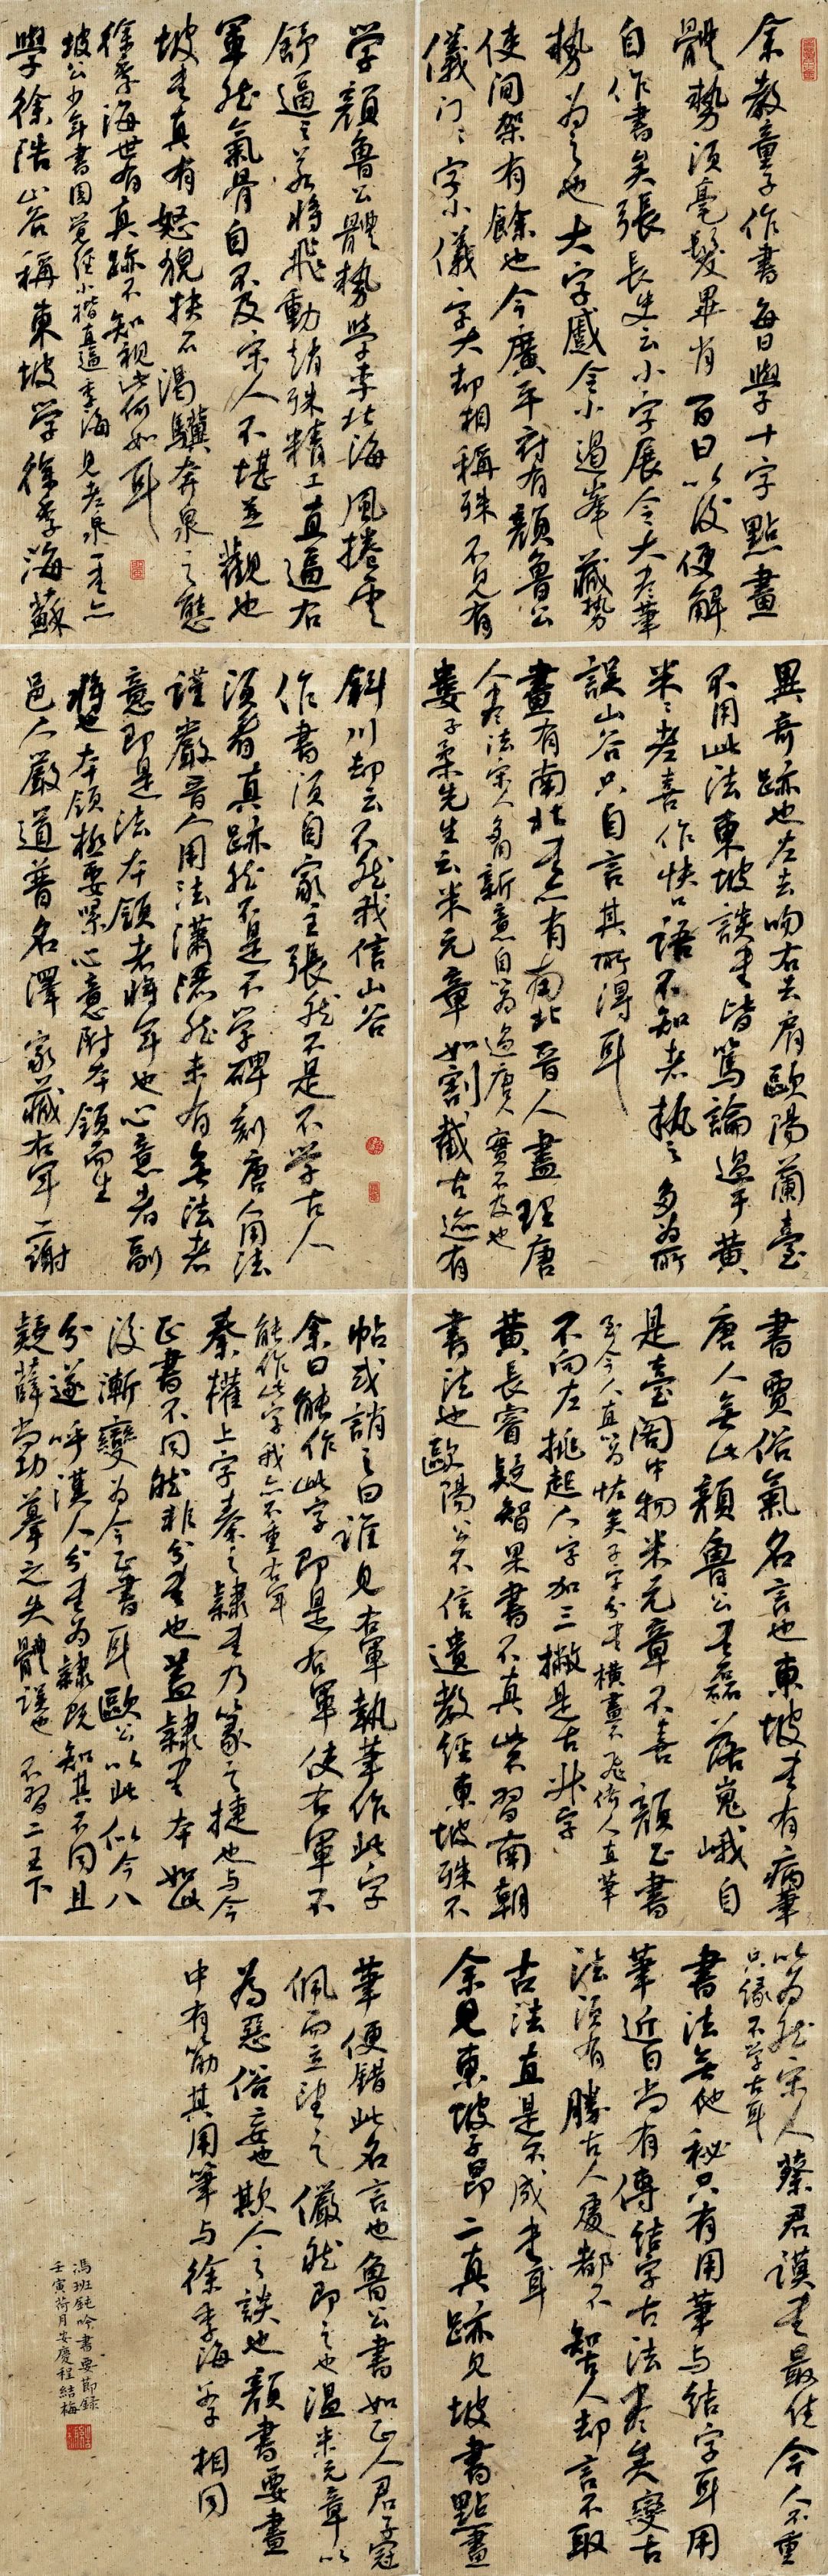 余教童子作書每日學十字點畫
體勢須毫髮畢肖百日以後便解
自作書矣張長史云小字展令大盡筆
勢為之也大字蹙令小遏峯藏勢
使间架有餘也今廣平府有顏魯公
儀门之字小儀之字大却相稱殊不見有
異奇跡也左去吻右去肩歐陽蘭臺
不用此法東坡談書皆篤論過乎黄
米之老喜作快口語不知者執之多為所
誤山谷只自言其所得耳
畫有南北書亦有南北晉人盡理唐
人盡法宋人多用新意自以為過唐人實不及也
婁子柔先生云米元章如割截古迹有
書賈俗氣名言也東坡書有病筆
唐人無此顏魯公書磊落嵬峨自
是臺阁中物米元章不喜顏正書
至今人直以為怪矣子字分書横畫不飛倚人直筆
不向左挑起人字加三撇是古狀字
黄長睿疑智果書不真當習南朝
書法也歐陽公不信遺教經東坡殊不
以為然宋人蔡君謨書最佳今人不重
只缘不学古耳
書法無他秘只有用筆与结字耳用
筆近日尚有傳结字古法盡矣變古
法须有勝古人處都不知古人却言不取
古法直是不成書耳
余見東坡子昂二真跡見坡書點畫
学顏魯公體勢學李北海風捲雲
舒逼之若将飛動趙殊精工直逼右
軍然氣骨自不及宋人不堪並觀也
坡書真有怒猊抉石渴驥奔泉之態
徐季海世有真跡不知視此何如耳
坡公少年書圓覺經小楷直逼季海見老泉一書亦
學徐浩山谷稱東坡学徐季海蘇
斜川却云不然我信山谷
作書须自家主張然不是不学古人
须看真跡然不是不学碑刻唐人用法
謹嚴晉人用法瀟灑然未有無法者
意即是法本领者将军也心意者副
将也本领極要緊心意附本领而生
邑人嚴道普名澤家藏右军二謝
帖或誚之曰誰見右軍執筆作此字
余曰能作此字即是右軍使右軍不
能作此字我亦不重右军
秦權上字秦之隸書乃篆之捷也与今
正書不同然非分書也蓋隸書本如此
後漸變为今正書耳歐公以此似今八
分遂呼漢人分書为隸既知其不同且
疑薛尚功摹之失體誤也不習二王下
筆便錯此名言也魯公書如正人君子冠
佩而立望之儼然即之也温米元章以
為惡俗妄也欺人之談也顏書要畫
中有筋其用筆与徐季海父子相同
馮班鈍吟書要節録
壬寅荷月安慶程結梅